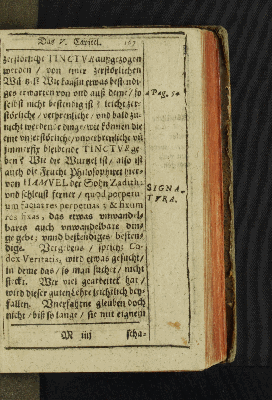 Das V. Capitel. 167
zerstörliche TINCTVR außgezogen
werden / von einer zerstörlichen
Wie können etwas bestendi-
ges erwarten von und auß deme / so
selbst nicht bestendig ist? leicht zer-
störliche / verbrenliche / und bald zu-
nicht werdende dinge / wie können die
eine unzerstörliche / unverbrenliche uñ
jimmerfix bleibende TINCTVR ge
ben? Wie die Wurtzel ist / also ist
auch die Frucht Philosophiret hier-
von HAMVEL der Sohn Zadith,
und schleust ferner / quod perpetu
um faciat res perpetuas & fixum
res fixas, das etwas unwandel-
bares auch unwandelbare din-
ge gebe; unnd bestendiges besten-
dige. Vergebens / spricht Co-
dex Veritatis, wird etwas gesucht /
in deme das / so man suchet / nicht
steckt. Wer viel gearbeitet hat /
wird dieser guten Lehre leichtlich bey-
fallen. Unerfahrne gleuben doch
nicht / biß so lange / sie mit eignem
M iiij scha-
a Pag. 54
SIGNA-
TVRA.